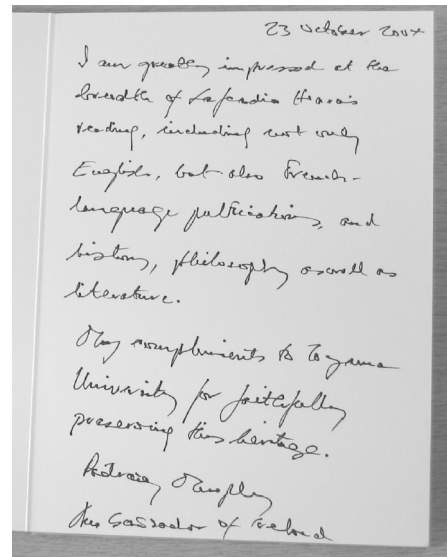 23 October 2004
I am greatly impressed at the
breadth of Lafcadio Hearn's
reading, including not only
English, but also French-
language publications, and
history, philosophy as well as
literature.
My compliments to Toyama
University for faithfully
preserving this heritage.
Pádraig Murphy
Ambassador of Ireland